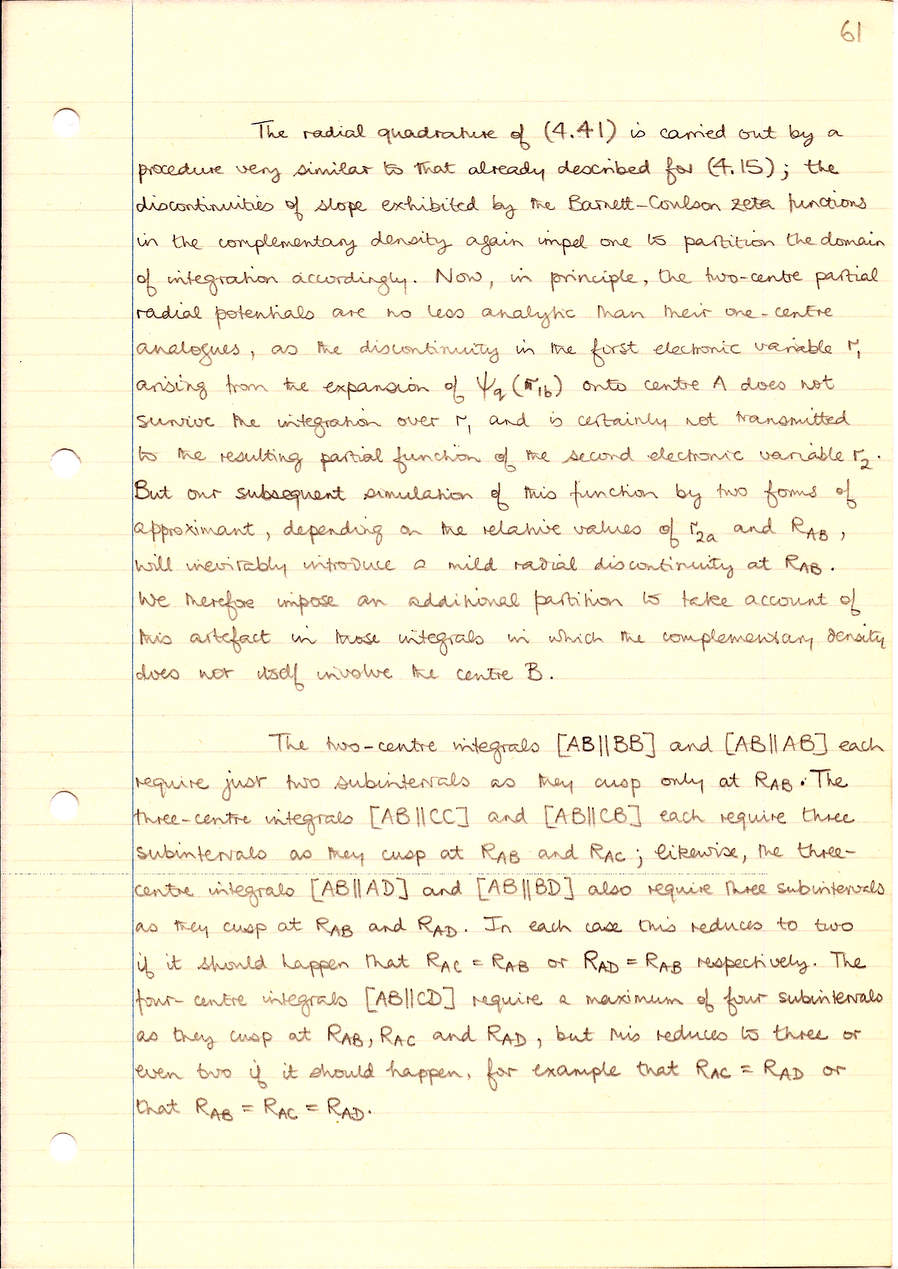 61
The radial quadrature of (4.41) is carried out by a
procedure very similar to that already described for (4.15); the
discontinuities of slope exhibited by the Barnett-Coulson zeta functions
in the complementary density again impel one to partition the domain
of integration accordingly. Now, in principle, the two-centre partial
radial potentials are no less analytic than their one-centre
analogues, as the discontinuity in the first electronic variable r₁
arising from the expansion of ψq(r₁b) onto centre A does not
survive the integration over r₁ and is certainly not transmitted
to the resulting partial function of the second electronic variable r₂.
But our subsequent simulation of this function by two forms of
approximant, depending on the relative values of r₂ₐ and R_AB,
will inevitably introduce a mild radial discontinuity at R_AB.
We therefore impose an additional partition to take account of
this artefact in those integrals in which the complementary density
does not itself involve the centre B.
The two-centre integrals [AB||BB] and [AB||AB] each
require just two subintervals as they cusp only at R_AB. The
three-centre integrals [AB||CC] and [AB||CB] each require three
subintervals as they cusp at R_AB and R_AC; likewise, the three-
centre integrals [AB||AD] and [AB||BD] also require three subintervals
as they cusp at R_AB and R_AD. In each case this reduces to two
if it should happen that R_AC = R_AB or R_AD = R_AB respectively. The
four-centre integrals [AB||CD] require a maximum of four subintervals
as they cusp at R_AB, R_AC and R_AD, but this reduces to three or
even two if it should happen, for example that R_AC = R_AD or
that R_AB = R_AC = R_AD.